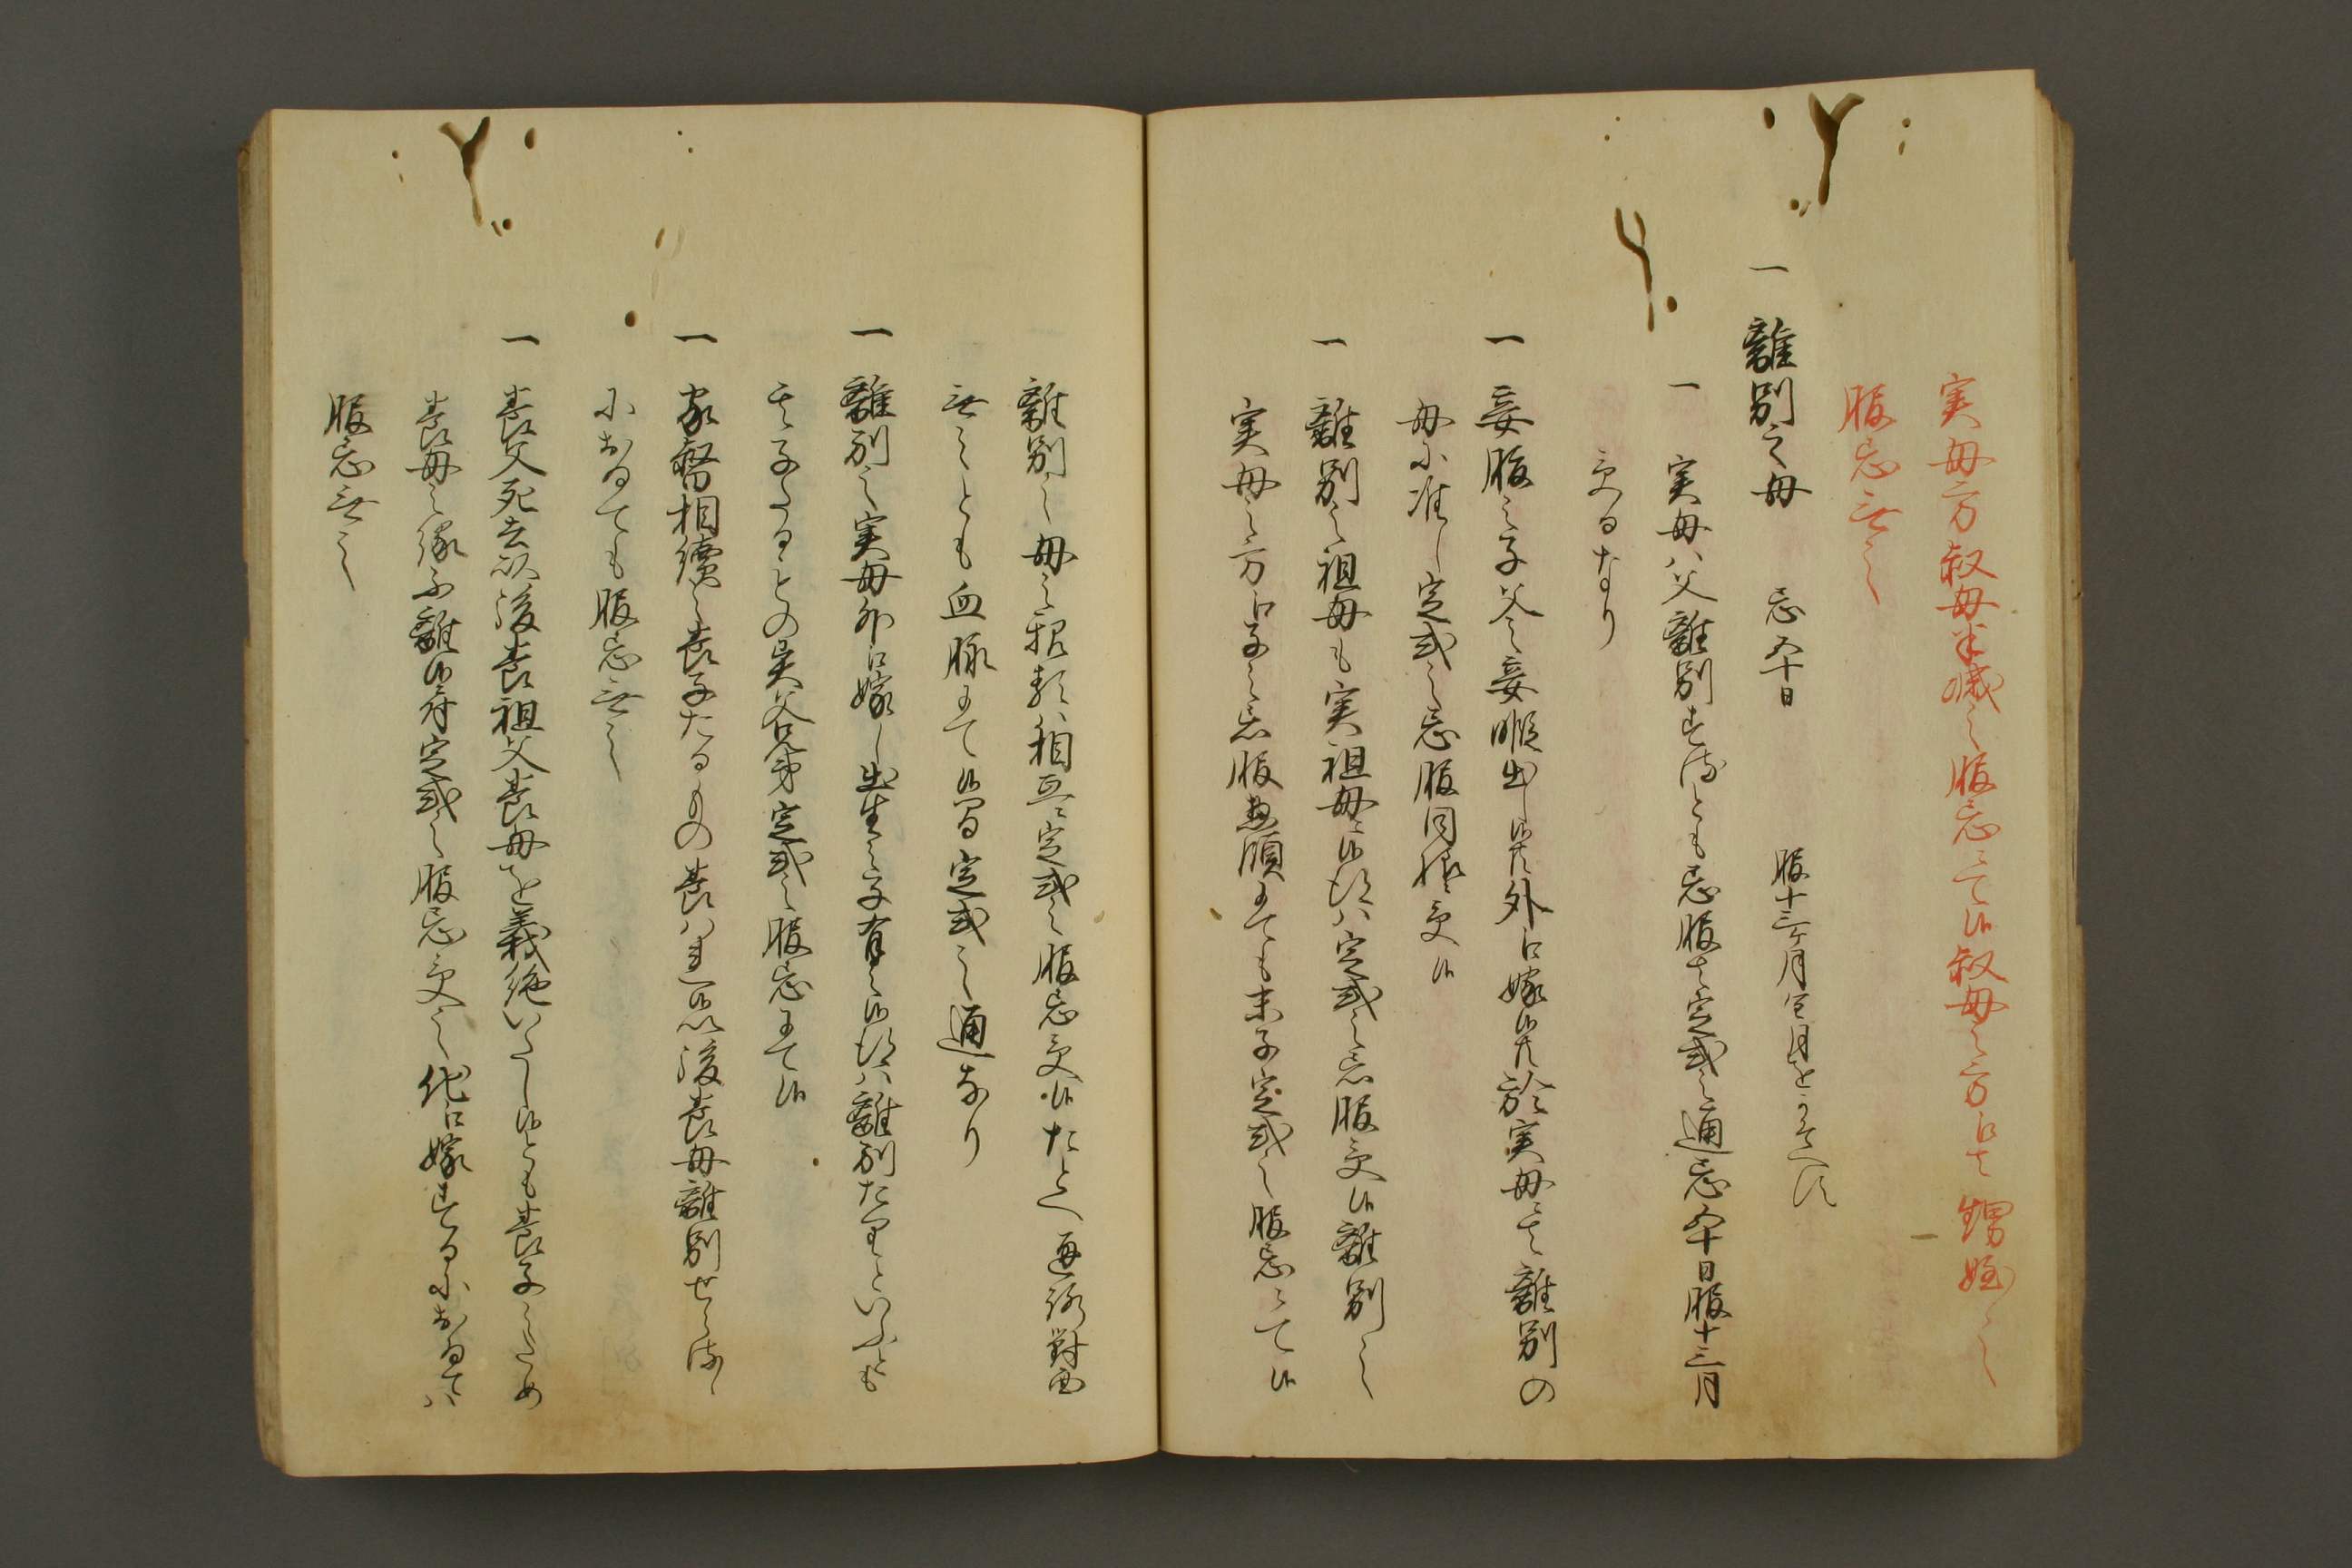 実母方叔母半減之服忌ニて候叔母之方ニハ甥姪之
服忌無之
一 離別之母 忌五十日 服十三ヶ月 閏月をかそへす
一 実母ハ父離別せしとも忌服者定式之通忌五十日服十三月
受るなり
一 妾腹之子父之妾暇出し候共外江嫁候共於実母者離別の
母に准し定式之忌服同様ニ受候
一 離別之祖母も実祖母ニ候得ハ定式之忌服受候離別之
実母之方江子之忌服惣領ニても末子定式之服忌ニて候
離別之母之親類ハ相互ニ定式之服忌受候たとへ通路対面
無之とも血脉ニて候間定式之通なり
一 離別之実母外江嫁し出生之子有之候得ハ離別たりといふとも
其子たるとの異父兄弟定式之服忌ニて候
一 家督相續之養子たるもの養ハれ候以後養母離別せしは
におゐても服忌無之
一 養父死去以後養祖父養母を義絶いたし候とも養子之ため
養母之縁不離候付定式之服忌受之他江嫁するにおゐてハ
服忌無之